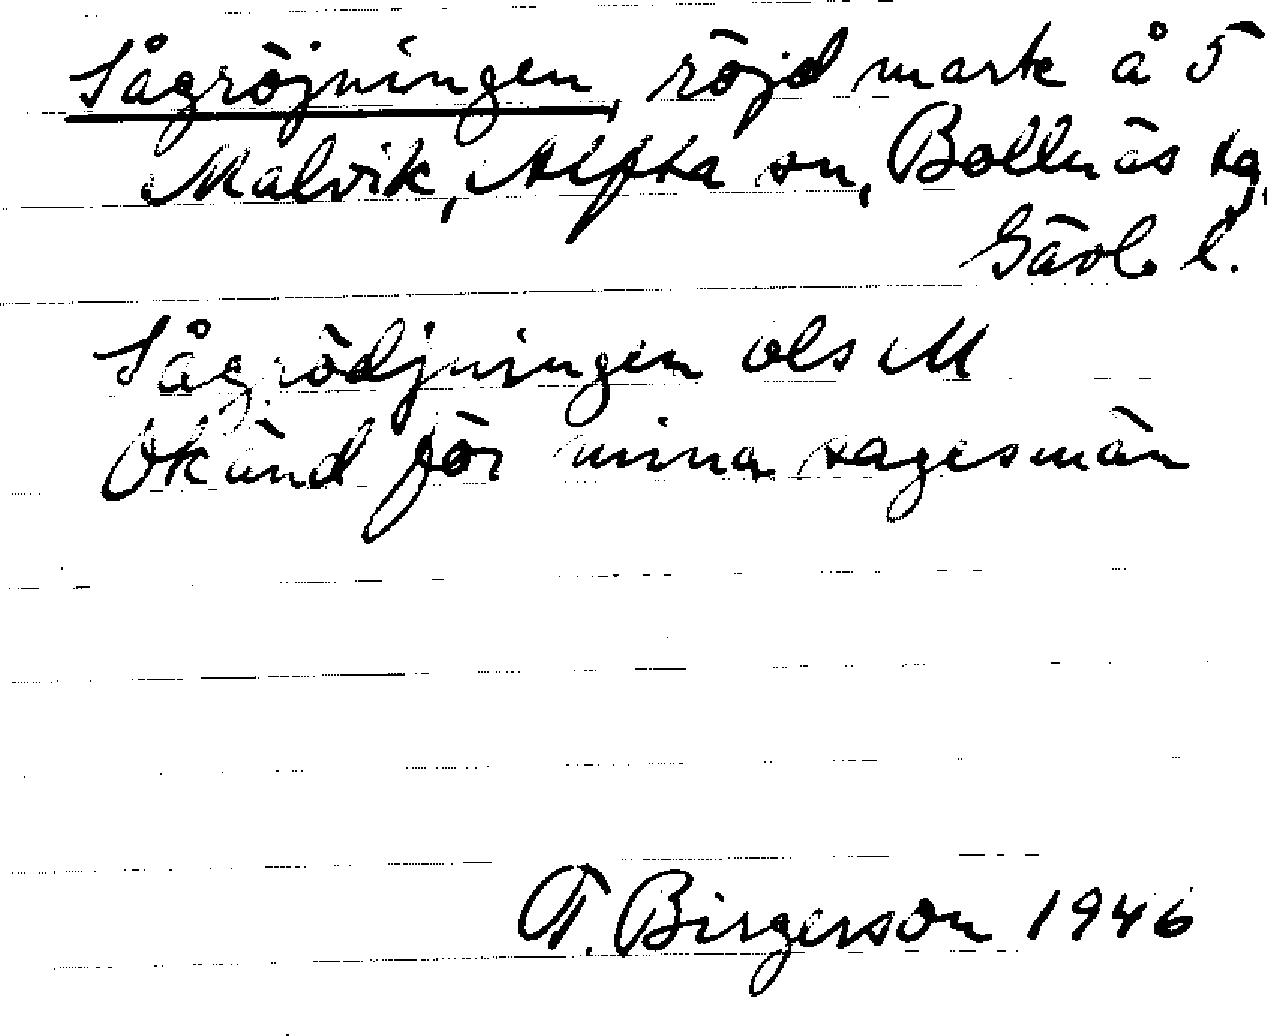 Sågröjningen, röjd mark å 5
Malvik, Alfta sn, Bollnäs tg,
Gävl. l.
Sågrödjningen ols M
Okänd för mina sagesmän
T. Birgerson 1946